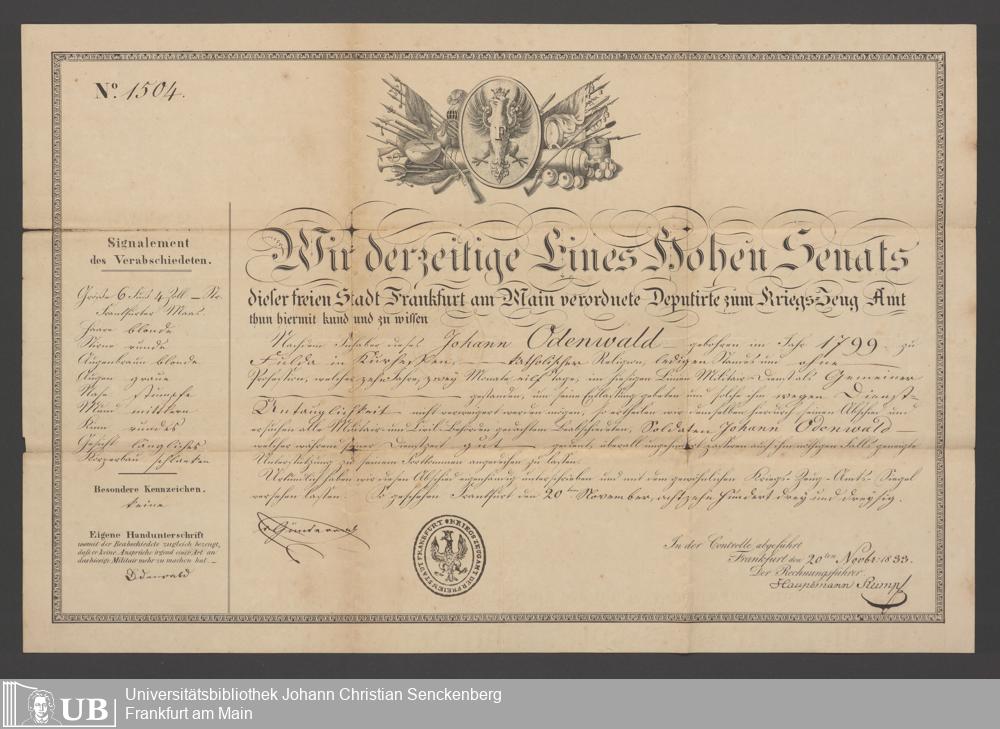 No. 1504.
Signalement
des Verabschiedeten.
Groeße 6 Fuß 4 Zoll – Str.
Frankfurter Maas
Haare blonde
Stirne runde
Augenbraun blonde
Augen graue
Nase stumpfe
Mund mittlern
Kinn rundes
Gesicht längliches
Körperbau schlanken
Besondere Kennzeichen.
keine
Eigene Handunterschrift
womit der Beabschiedete zugleich bezeugt,
daß er keine Ansprüche irgend einer Art an
das hiesige Militair mehr zu machen hat.
Odenwald
Wir derzeitige Eines Hohen Senats
dieser freien Stadt Frankfurt am Main verordnete Deputirte zum Kriegs Zeug Amt
thun hiermit kund und zu wissen
Nachdem Inhaber dieses Johann Odenwald gebohren im Jahr 1799 zu
Fulda in Kurhessen, katholischer Religion, ledigen Standes und ohne
Profession, welcher zehn Jahre, zwey Monate, eilf Tage, im hiesigen Linien Militair-Dienst als Gemeiner
gestanden, um seine Entlassung gebeten und solche ihm wegen Dienst-
Untauglichkeit nicht verweigert werden mögen, so ertheilen wir demselben hierdurch seinen Abschied und
ersuchen alle Militair- und Civil-Behörden gedachtem Beabschiedten, Soldaten Johann Odenwald
welcher während seiner Dienstzeit gut gedient, überall ungehindert passiren auch ihm nöthigen Falls geneigte
Unterstützung zu seinem Fortkommen angedeihen zu lassen.
Urkundlich haben wir diesen Abschied eigenhändig unterschrieben und mit dem gewöhnlichen Kriegs-Zeug-Amts-Siegel
versehen lassen. So geschehen Frankfurt den 20ten November, achtzehn hundert drey und dreysig.
KRIEGS ZEUG AMT DER FREIEN STADT FRANKFURT
In der Controlle abgeführt
Frankfurt den 20ten Novbr. 1833.
Der Rechnungsführer
Hauptmann Rumpf
UB
Universitätsbibliothek Johann Christian Senckenberg
Frankfurt am Main